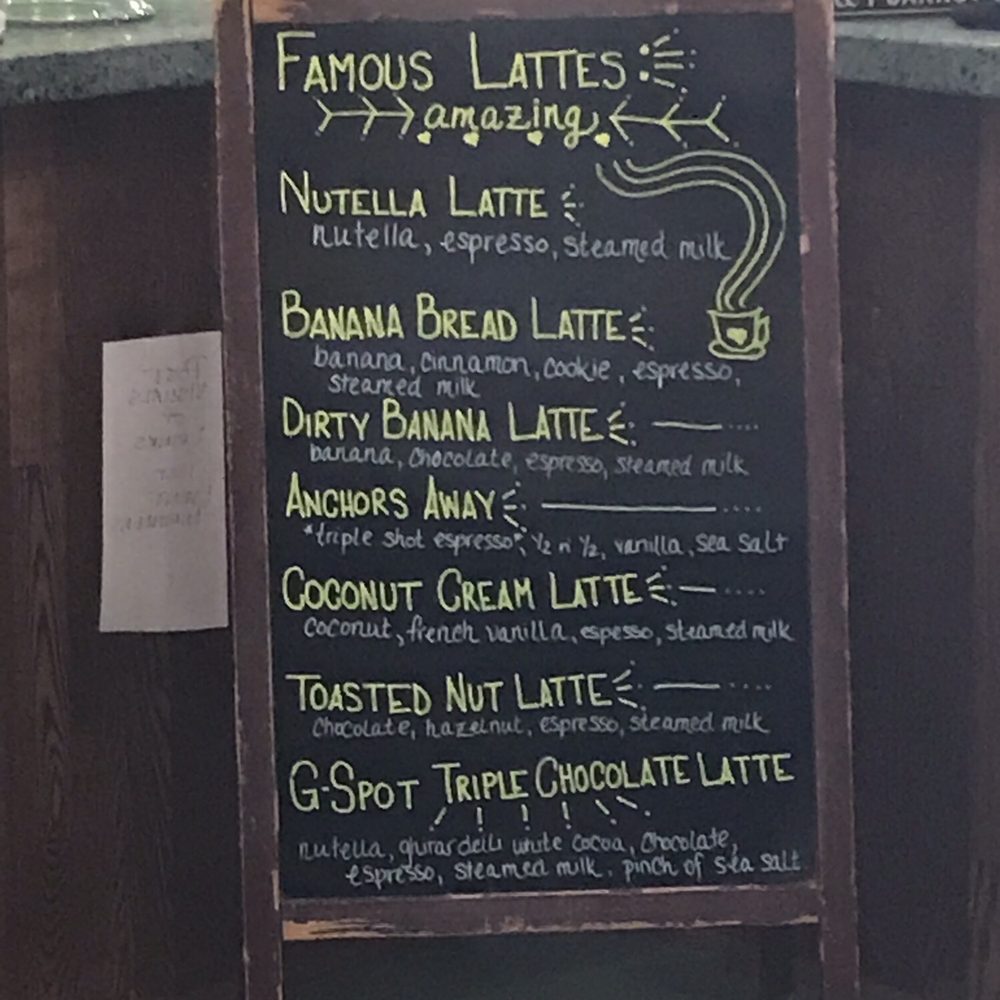 FAMOUS LATTES
amazing
NUTELLA LATTE
nutella, espresso, steamed milk
BANANA BREAD LATTE
banana, cinnamon, cookie, espresso,
steamed milk
DIRTY BANANA LATTE
banana, chocolate, espresso, steamed milk
ANCHORS AWAY
*triple shot espresso*, 1/2 n 1/2, vanilla, sea salt
COCONUT CREAM LATTE
coconut, french vanilla, espesso, steamed milk
TOASTED NUT LATTE
chocolate, hazelnut, espresso, steamed milk
G-SPOT TRIPLE CHOCOLATE LATTE
nutella, ghirardelli white cocoa, chocolate,
espresso, steamed milk, pinch of sea salt